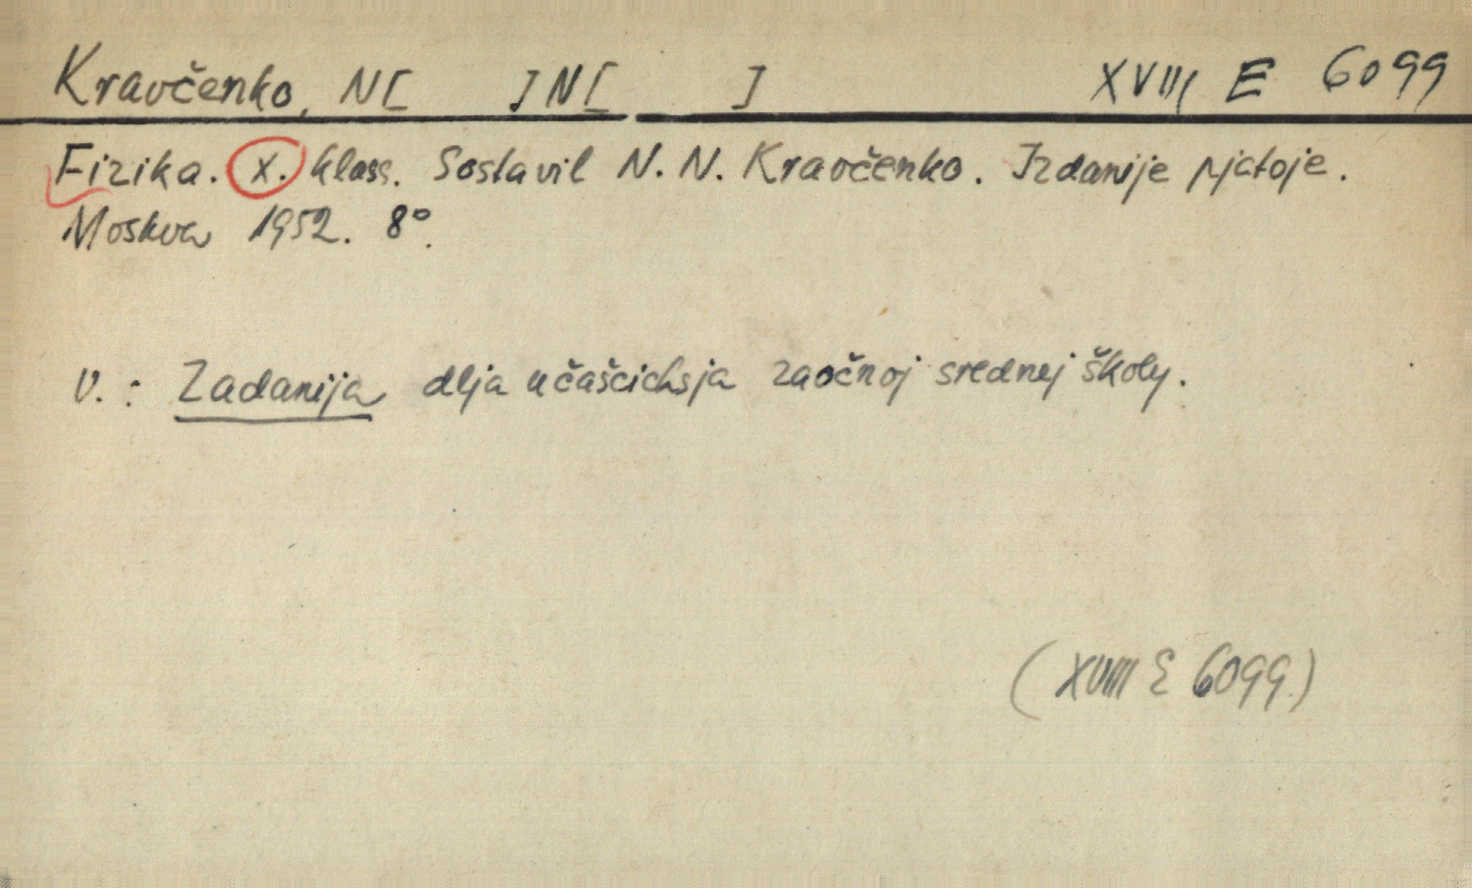 Kravčenko, N[ ]N[ ] XVIII E 6099
Fizika. X. klass. Sostavil N. N. Kravčenko. Izdanije pjatoje.
Moskva 1952. 8°.
V.: Zadanija dlja učaščichsja zaočnoj srednej školy.
(XVIII E 6099)